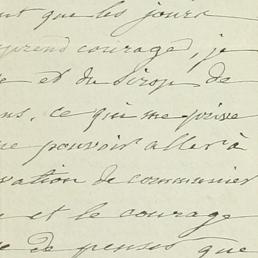 ut que les jours
prend courage, je
e et du Sirop de
ns, ce qui me prive
ue pouvoir aller à
vation de communier
e et le courage
e de penses que